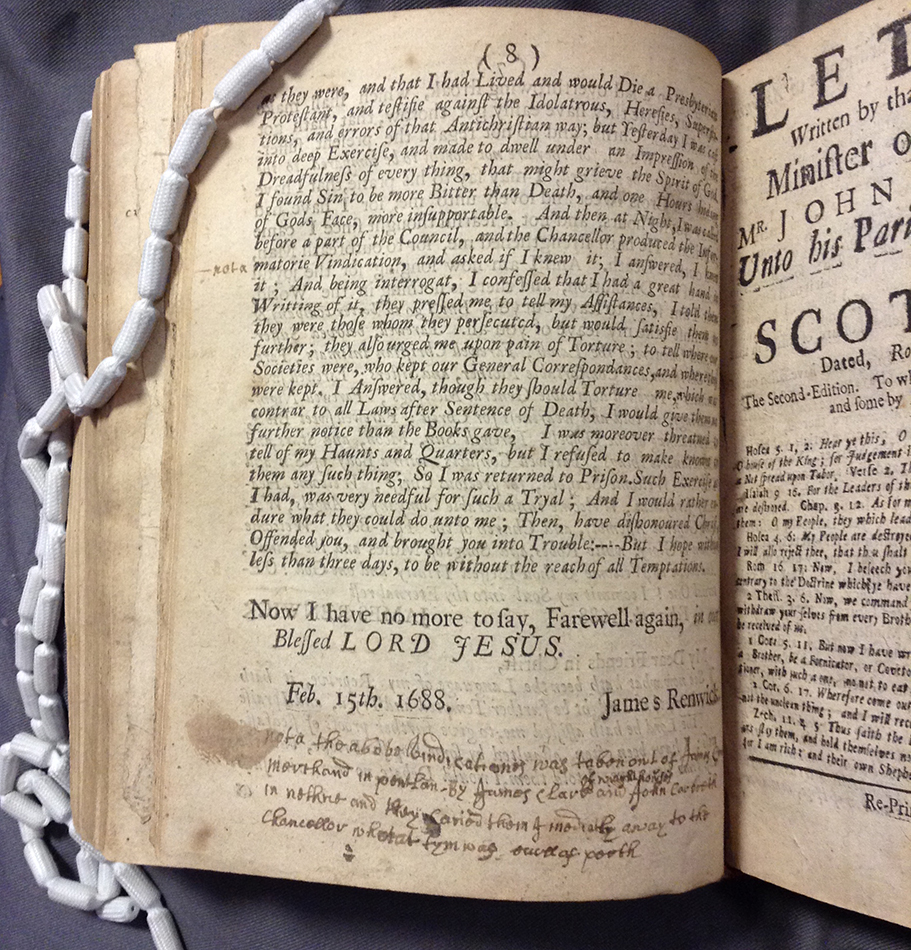 ( 8 )
as they were, and that I had Lived and would Die a Presbyterian
Proteſtant, and teſtifie againſt the Idolatrous, Hereſies, Superſti-
tions, and errors of that Antichriſtian way; but Yeſterday I was caſt
into deep Exerciſe, and made to dwell under an Impreſſion of the
Dreadfulneſs of every thing, that might grieve the Spirit of God,
I found Sin to be more Bitter than Death, and one Hours
of Gods Face, more inſupportable. And then at Night, I was called
before a part of the Council, and the Chancellor produced the Infor-
matorie Vindication, and asked if I knew it; I anſwered, I knew
nota
it; And being interrogat, I confeſſed that I had a great hand in
Writting of it, they preſſed me to tell my Aſſiſtances, I told them
they were thoſe whom they perſecuted, but would ſatisfie them no
further; they alſo urged me upon pain of Torture; to tell where our
Societies were, who kept our General Correſpondances, and where they
were kept. I Anſwered, though they ſhould Torture me, which was
contrar to all Laws after Sentence of Death, I would give them no
further notice than the Books gave, I was moreover threatned to
tell of my Haunts and Quarters, but I refuſed to make known to
them any ſuch thing; So I was returned to Priſon. Such Exerciſe as
I had, was very needful for ſuch a Tryal; And I would rather en-
dure what they could do unto me; Then, have diſhonoured Chriſt,
Offended you, and brought you into Trouble:----But I hope within
leſs than three days, to be without the reach of all Temptations.
Now I have no more to ſay, Farewell again, in our
Bleſſed LORD JESUS.
Feb. 15th. 1688. James Renwick
nota the above vindicationes was taken out of James
merchand in pentlan by James Clark and John
in nethrie and they caried them Imediatly away to the
Chancellor who at that tym was of perth
LET
Written by tha
Miniſter o
MR. JOHN
Unto his Pari
SCOT
Dated, Ro
The Second-Edition. To wh
and ſome by
Hoſea 5. 1, 2. Hear ye this, O
O houſe of the King; for Judgement i
a Net ſpread upon Tabor. Verſe 2. Th
Iſaiah 9 16. For the Leaders of th
are deſtroyed. Chap. 3. 12. As for m
them: O my People, they which lead
Hoſea 4. 6: My People are deſtroye
I will alſo reject thee, that thou ſhalt
Rom 16 17: Now, I beſeech yo
contrary to the Doctrine which ye have
2 Theſſ. 3. 6. Now, we command
withdraw your ſelves from every Broth
he received of us.
1 Cor: 5. 11. But now I have wr
a Brother, be a Fornicator, or Coveto
with ſuch a one, no not to eat
2 Cor. 6. 17. Wherefore come out
not the unclean thing; and I will rece
Zech. 11. 4, 5 Thus ſaith the
ſlay them, and hold themſelves n
for I am rich; and their own Sheph
Re-Pri